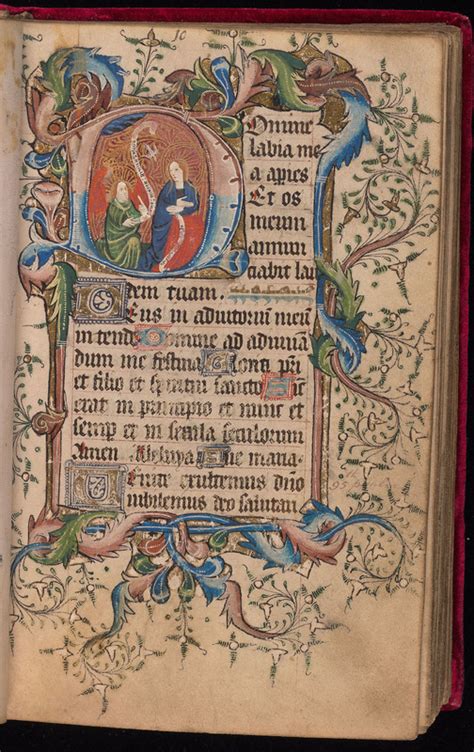 10
Domine
labia me
a apies
Et os
meum
annun
ciabit lau
dem tuam.
Deus in adiutoriū meū
in tende Domine ad adiuuā
dum me festina Gloria pri
et filio et spiritui sancto Sic
erat in principio et nunc et
semp et in secula seculorum
Amen Alleluya Aue maria
Uenite exultemus dño
iubilemus deo salutari